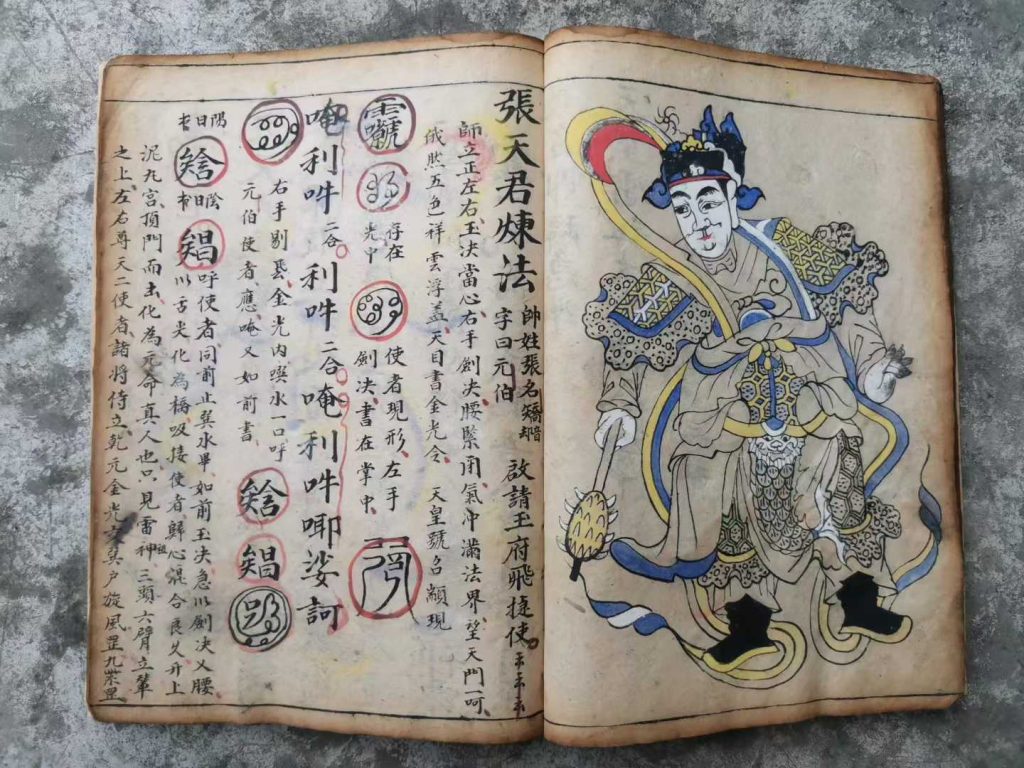 張天君煉法 帥姓張名 字曰元伯 啟請玉府飛捷使 云云云
師立正左右玉決當心右手劍決腰緊甬氣冲滿法界望天門一呵
俄然五色祥雲浮盖天目書金光令 天皇號召 現
存在光中 使者現形左手劍決書在掌中
唵利吽二合利吽二合唵利吽唧娑訶
右手剔 金光內噀水一口呼
元伯使者應唵又如前書
呼使者同前止 水畢如前玉決急以劍決义腰
以舌尖化為橋吸接使者歸心混合良久升上
泥丸宮頂門而出化為元命真人也只見雷神三頭六臂立輦
之上左右尊天二使者諸將侍立乾元金光 巽户旋風罡九 罡